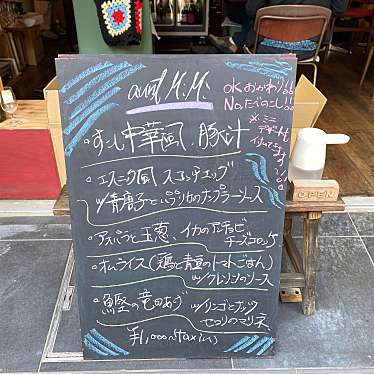 aunt M.M.
okおかわり!!
Noたべのこし!!
※ミニ
デザート
すこし中華風、豚汁
エスニック風 スコッチエッグ
w/青唐子とパプリカのナンプラーソース
アスパラと玉葱、イカのアンチョビ
チーズコロッケ
オムライス(鶏と青豆のトマトごはん)
w/クレソンのソース
鰹の竜田あげ
w/リンゴとナッツ
セロリのマリネ
¥1,000〜taxin
OPEN